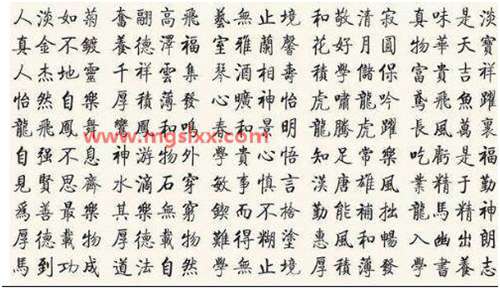 人淡如菊 奮翮高飛 藝無止境 和敬清寂 真味是淡
真金不鍍 養德澤福 室雅蘭馨 花好月圓 物華天寶
人杰地靈 千祥雲集 琴酒相壽 積學儲保 富貴吉祥
怡然自樂 厚積薄發 心曠神怡 虎嘯龍吟 鳶飛魚躍
龍飛鳳舞 鸞鳳和 春和景明 龍騰虎躍 長風萬裏
www.mgslxx.com
自强不息 神游物外 學貴心悟 知足常樂 吃虧是福
見賢思齊 水滴石穿 敏事慎言 漢唐雄風 業精于勤
爲善最樂 其樂無窮 鍥而不捨 勤能補拙 龍馬精神
厚德載物 厚德載物 難得糊塗 惠風和暢 入幽出朗
馬到功成 道法自然 學無止境 厚積薄發 學書養志